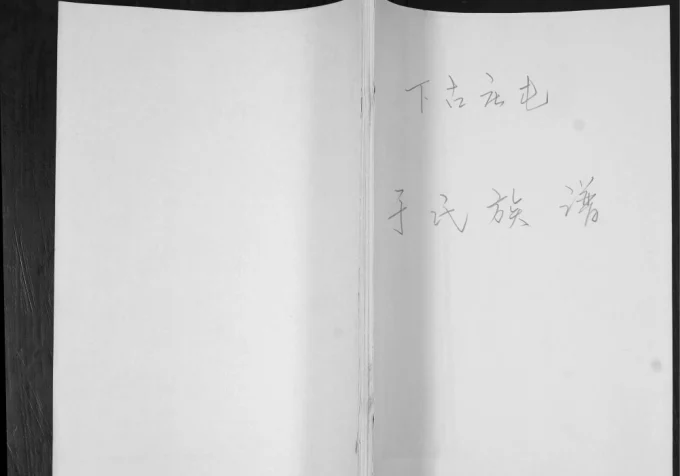 下古庄屯
于氏族谱